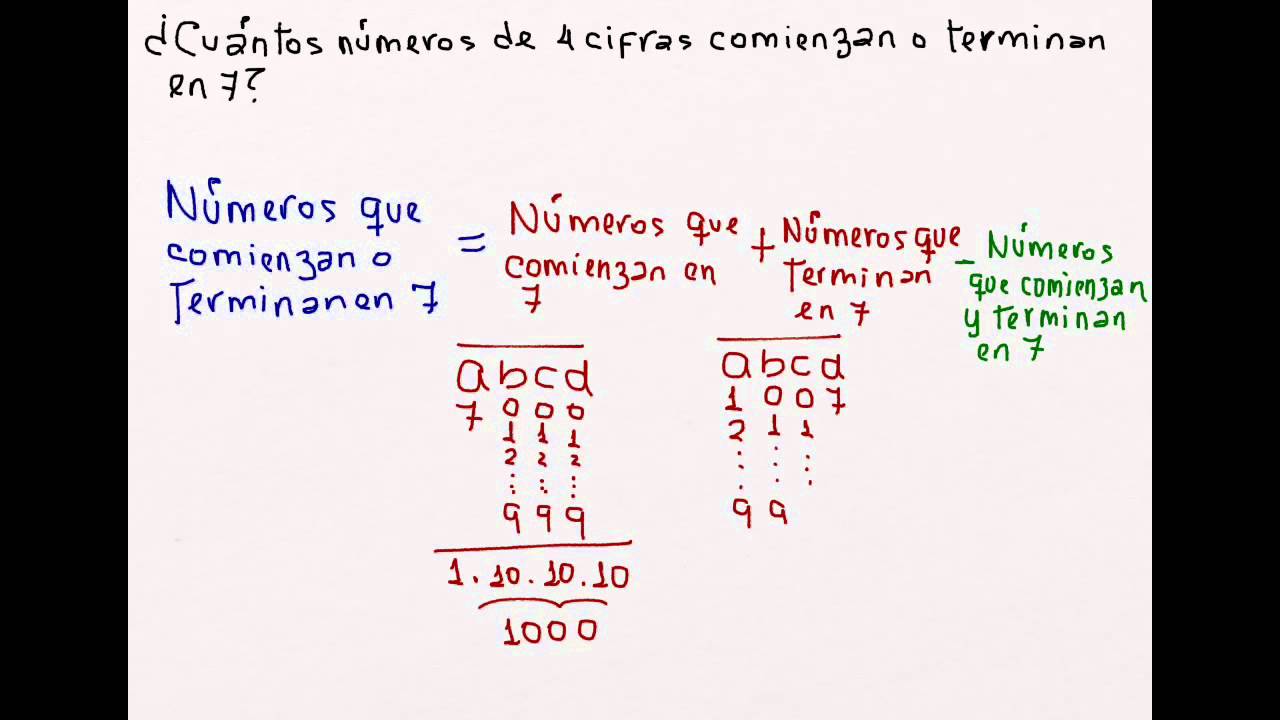 ¿Cuántos números de 4 cifras comienzan o terminan
en 7?
Números que
comienzan o
Terminan en 7
=
Números que
comienzan en
7
+
Números que
terminan
en 7
- Números
que comienzan
y terminan
en 7
abcd
7 0 0 0
1 1 1
2 2 2
⋮ ⋮ ⋮
9 9 9
1.10.10.10
1000
abcd
1 0 0 7
2 1 1
⋮ ⋮ ⋮
9 9